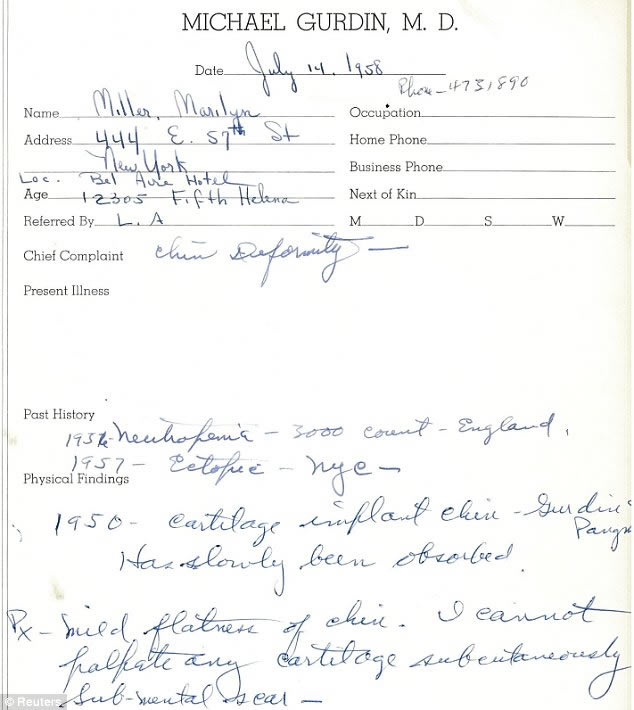 MICHAEL GURDIN, M. D.
Date July 14, 1958
Phone - 4731890
Name Miller, Marilyn Occupation
Address 444 E. 57th St Home Phone
New York Business Phone
Loc. Bel Aire Hotel
Age 12305 Fifth Helena Next of Kin
Referred By L. A M D S W
Chief Complaint Chin Deformity —
Present Illness
Past History
1956 Neutropenia - 3000 count - England.
1957 - Ectopic - NYC -
Physical Findings
1950 - cartilage implant chin - Gurdin
Pangm
Has slowly been absorbed.
Px - Mild flatness of chin. I cannot
palpate any cartilage subcutaneously
Sub-mental scar -
© Reuters